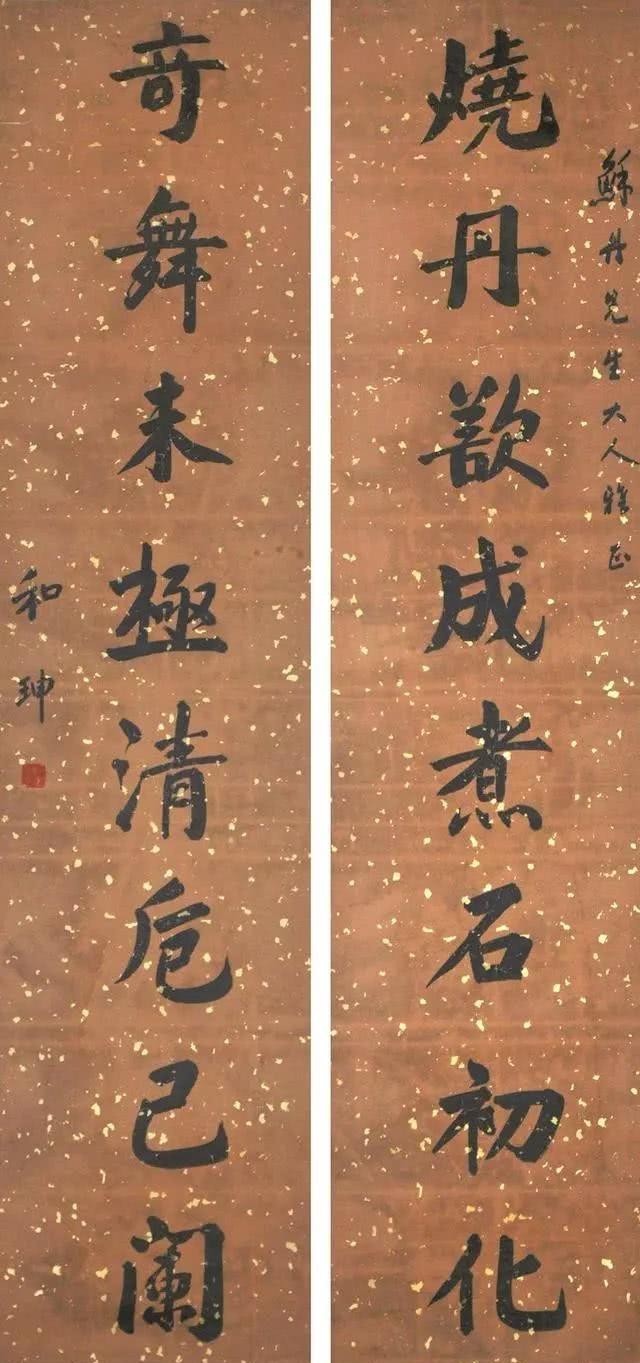 穌舟先生大人雅正
燒丹成煮石初化
奇舞未極清卮已闌
和珅